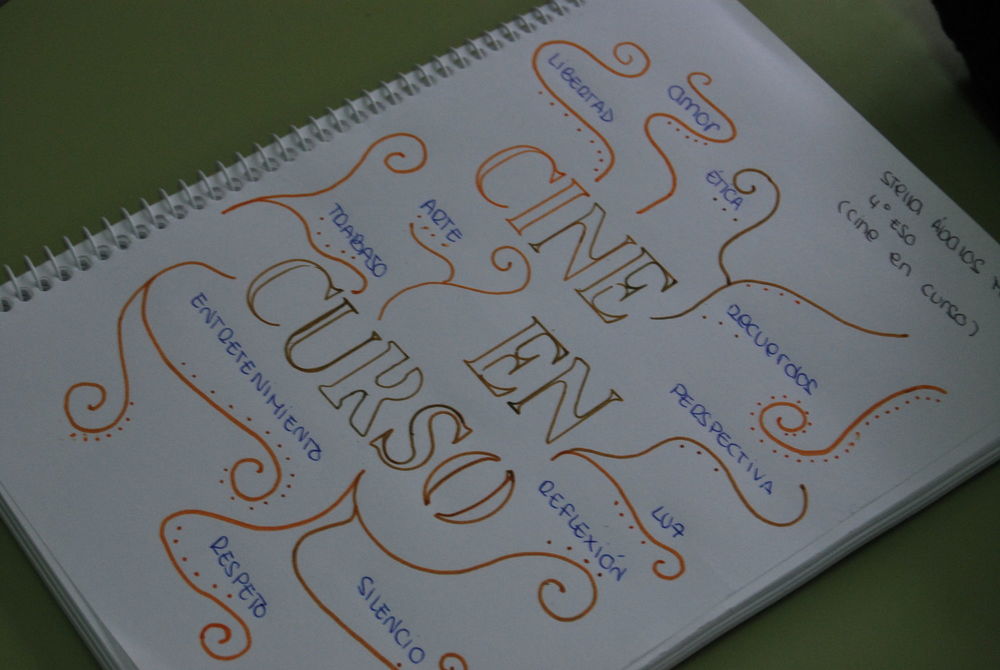 LIBERTAD
amor
ÉTICA
STELLA ÁBALOS
4º ESO
(cine en curso)
TRABAJO
ARTE
CINE
EN
CURSO
RECUERDOS
ENTRETENIMIENTO
PERSPECTIVA
REFLEXIÓN
LUZ
RESPETO
SILENCIO